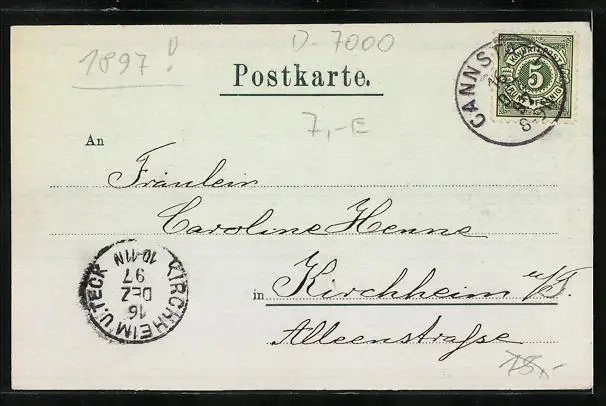 1897!
D-7000
Postkarte.
7,-E
CANNST
K.WÜRTT.POST
5
FÜNF PFENNIG
An
Fräulein
Caroline Henne
in Kirchheim u/T.
Alleenstraße
KIRCHHEIM U. TECK
16
DEZ
97
10-11N
78,-